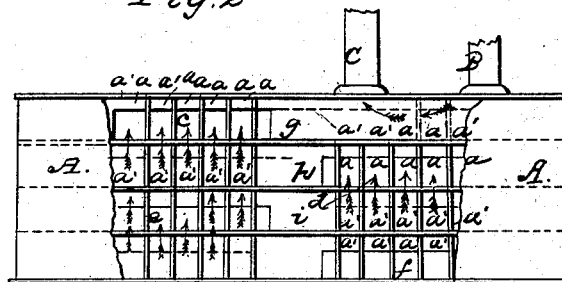 Fig. 2
C B
a' a a' a a a a
c g a' a' a a' a'
A. a' a' a' a' a' h a a a a a A.
d
e i a' a' a' a' a'
a' a' a' a'
f